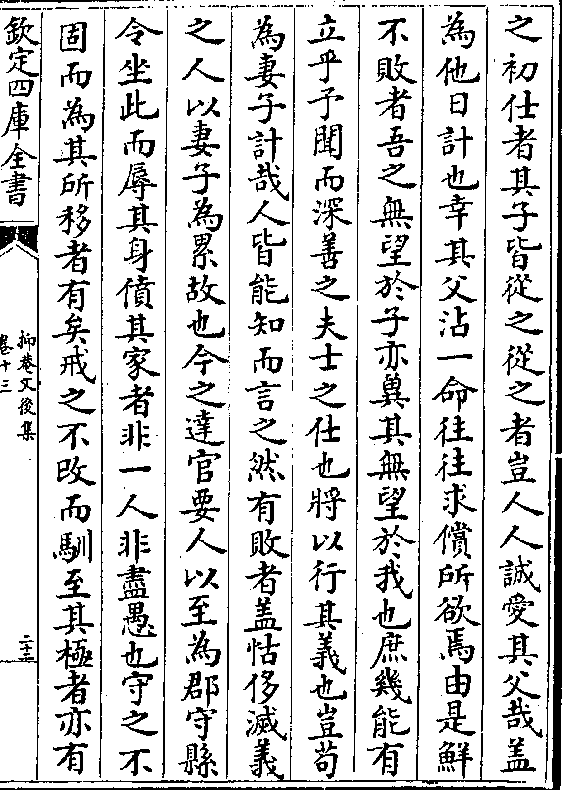 之初仕者其子皆從之從之者豈人人誠愛其父哉盖
為他日計也幸其父沾一命往往求償所欲焉由是鮮
不敗者吾之無望於子亦兾其無望於我也庶幾能有
立乎予聞而深善之夫士之仕也將以行其義也豈苟
為妻子計哉人皆能知而言之然有敗者盖怙侈滅義
之人以妻子為累故也今之達官要人以至為郡守縣
令坐此而辱其身僨其家者非一人非盡愚也守之不
固而為其所移者有矣戒之不改而馴至其極者亦有
欽定四庫全書
抑菴文後集
卷十三
二十二